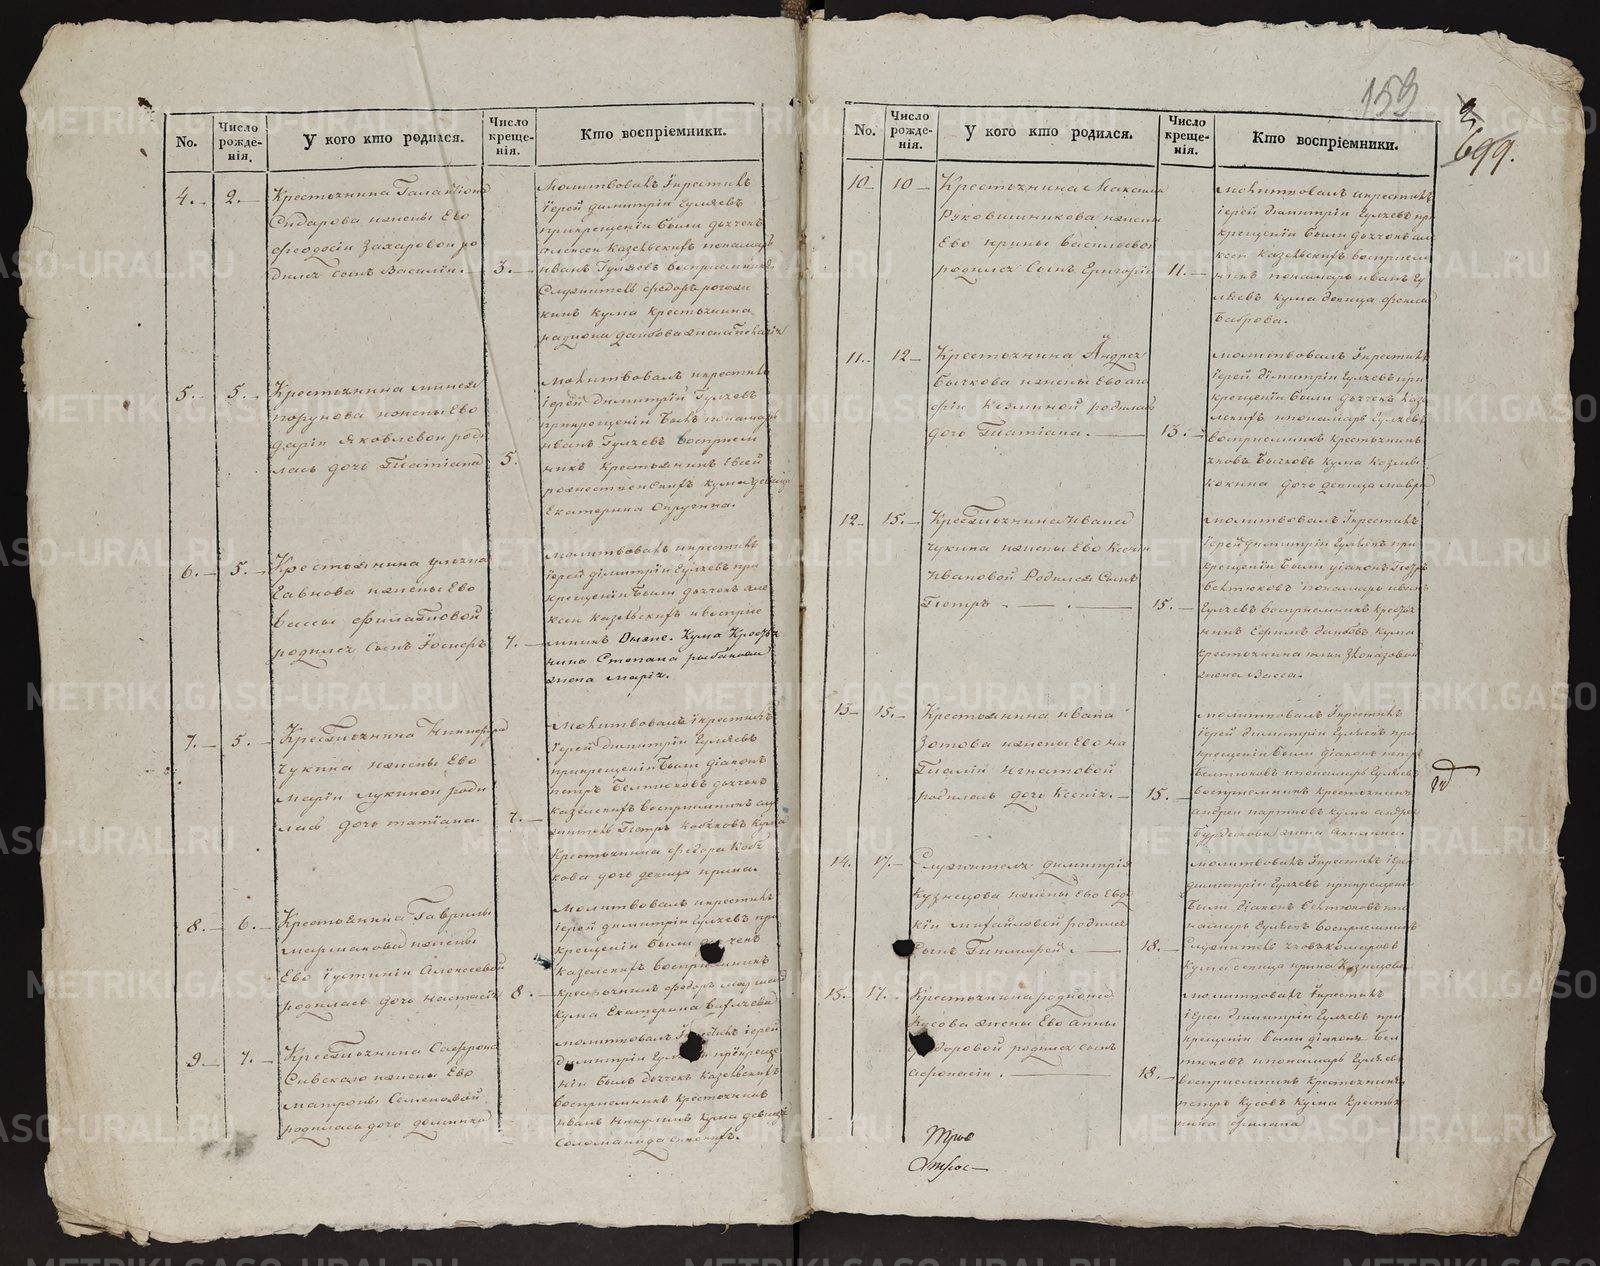 159
2
699.
No.
Число рожде-нія.
У кого кто родился.
Число креще-нія.
Кто воспріемники.
4.
2.
Крестьянина Галактіона
Сидарова жены Ево
феодосіи Захаровой ро
дился сынъ Василіи.
3.
Молитвовалъ Їкрестилъ
їерей димитрїи Гуляевъ
прикрещеніи были дьячекъ
алексеи Казельскихъ понамарь
иванъ Гуляевъ воспріемникъ
Служитель федоръ
кинъ кума крестьянина
5.
5.
Крестьянина
жены Ево
даріи Яковлевои роди
лась дочь Татіана
5.
Молитвовалъ икрестилъ
їерей димитрїй Гуляевъ
прикрещеніи былъ понамарь
иванъ Гуляевъ восприем
никъ крестьянинъ Евсей
рожественскихъ кума девица
Екатерина
6.
5.
Крестьянина
жены Ево
вассы филатовой
родился сынъ Їосифъ
7.
Молитвовалъ икрестилъ
їерей дімитрїи Гуляевъ при
крещеніи были дьячекъ але
ксеи Казельскихъ ивосприе
мникъ Онже. Кума Крестья
нина Степана рыбакова
жена Марія.
7.
5.
Крестьянина Никифора
Чукина жены Ево
Маріи Лукиной роди
лась дочь татіана
7.
Молитвовалъ їкрестилъ
їерей димитрїи Гуляевъ
прикрещеніи были діаконъ
петръ Бектюковъ дьячекъ
казелскихъ восприемникъ слу
житель Петръ Кобяковъ кума
Крестьянина федора Кобя
кова дочь девица ирина.
8.
6.
Крестьянина Гаврилы
Мармакова жены
Ево їустиніи Алексеевой
родилась дочь настасія
8.
Молитвовалъ икрестилъ
їерей димитрїи Гуляевъ при
крещеніи были дьячекъ
Казелскихъ восприемникъ
крестьянинъ федоръ
кума Екатерина
9.
7.
Крестьянина Сафрона
Сивскаго жены Ево
матроны Семеновой
родилась дочь домникія
молитвовалъ Їкрестилъ їерей
димитрїи Гуляевъ прікреще
ніи былъ дьячекъ Казельскихъ
восприемникъ крестьянинъ
иванъ никулинъ кума девица
соломанида сивскихъ.
No.
Число рожде-нія.
У кого кто родился.
Число креще-нія.
Кто воспріемники.
10.
10
Крестьянина Максима
Рукавишникова жены
Ево ирины васильевой
родился Сынъ Григорїи
11.
молитвовалъ икрестилъ
їерей димитрїи Гуляевъ при
крещеніи были дьячекъ але
ксеи Казельскихъ восприем
никъ понамарь иванъ Гу
ляевъ кума девица фекла
Баброва.
11.
12
Крестьянина Андрея
Бычкова жены Ево ага
фіи Козминой родилась
дочь Татіана.
13.
молитвовалъ Їкрестилъ
їерей димитрїи Гуляевъ при
крещеніи были дьячекъ Казе
лскихъ ипонамарь Гуляевъ
восприемникъ крестьянинъ
Бычковъ кума
дочь девица мавра
12
15.
Крестьянина Ивана
Чукина жены Ево Ксеніи
Ивановой Родился Сынъ
Петръ
15.
молитвовалъ Їкрестилъ
їерей димитрїи Гуляевъ при
крещеніи были діаконъ Петръ
Бектюковъ понамарь иванъ
Гуляевъ восприемникъ крестья
нинъ Ефимъ кума
крестьянина
жена Васса.
13
15.
Крестьянина ивана
Зотова жены Ево на
таліи Игнатовой
родилась дочь Ксенія.
15.
молитвовалъ Їкрестилъ
їерей димитрїи Гуляевъ при
крещеніи были діаконъ петръ
Бектюковъ ипонамарь Гуляевъ
восприемникъ крестьянинъ
андреи партновъ кума андрея
жена акилина.
14.
17.
Служителя димитрія
Кузнецова жены Ево Евдо
кіи михайловой родился
Сынъ Тимофей
18.
молитвовалъ Їкрестилъ їерей
димитрїи Гуляевъ прикрещеніи
были діаконъ бектюковъ ипо
намарь Гуляевъ восприемникъ
Служитель
кума девица ирина Кузнецова
15.
17.
Крестьянина родиона
Кусова жены Ево анны
федоровой родился сынъ
афонасіи.
18.
молитвовалъ Їкрестилъ
їерей димитрїи Гуляевъ при
крещеніи были діаконъ Бек
тюковъ ипонамарь Гуляевъ
восприемникъ крестьянинъ
петръ Кусовъ кума крестья
нина
METRIKI.GASO-URAL.RU